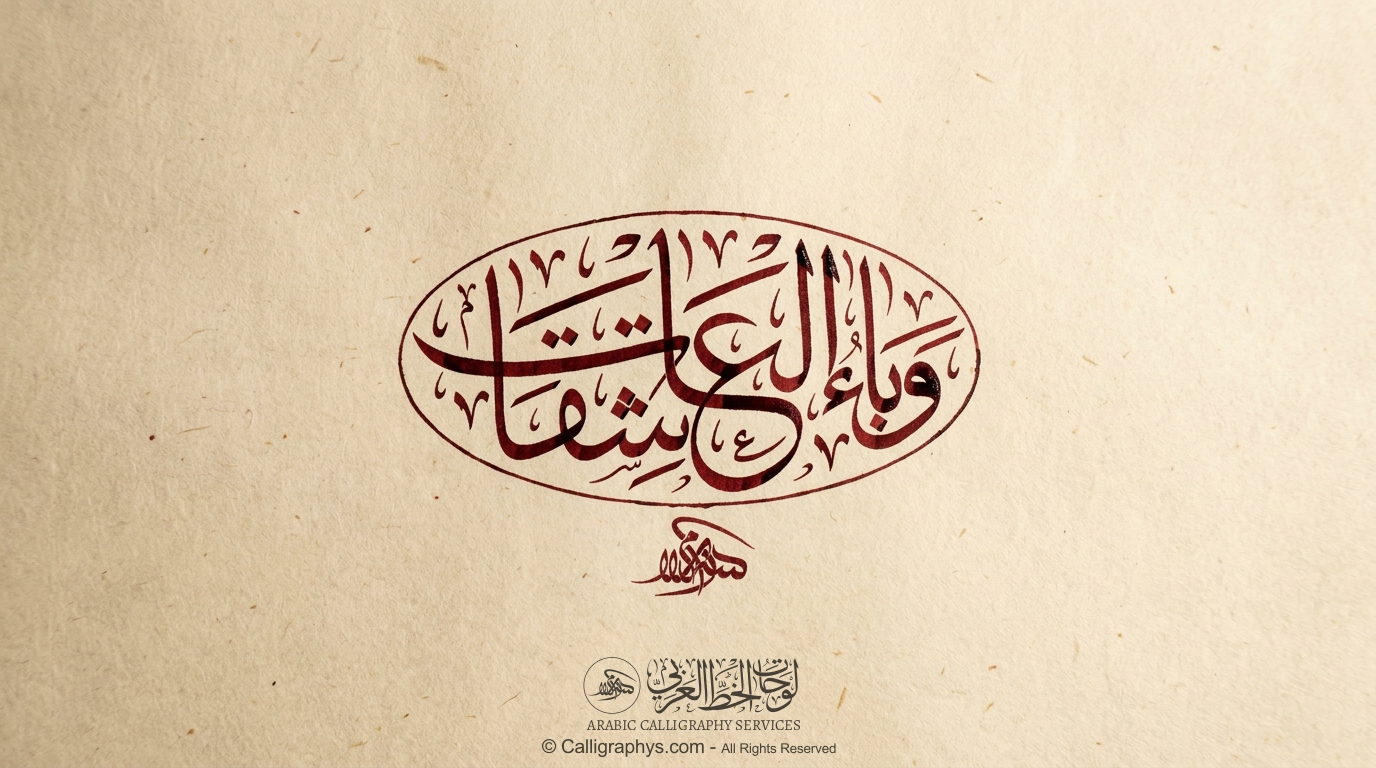 وَباءُ العاشِقات
لوحاتُ الخطِّ العربي
ARABIC CALLIGRAPHY SERVICES
© Calligraphys.com - All Rights Reserved